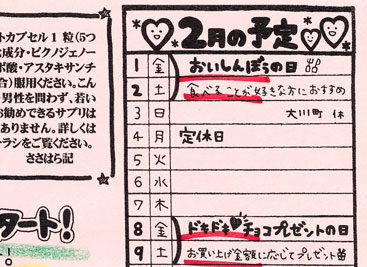 トカプセル1粒(5つ
成分・ピクノジェノー
ポ酸・アスタキサンチ
合)服用ください。こん
男性を問わず、若い
お勧めできるサプリは
ありません。詳しくは
ーラシをご覧ください。
ささはら記
タート!
2月の予定
1 金 おいしんぼうの日
2 土 食べることが好きな方におすすめ
3 日 大川町 休
4 月 定休日
5 火
6 水
7 木
8 金 ドキドキ♥チョコプレゼントの日
9 土 お買い上げ金額に応じてプレゼント